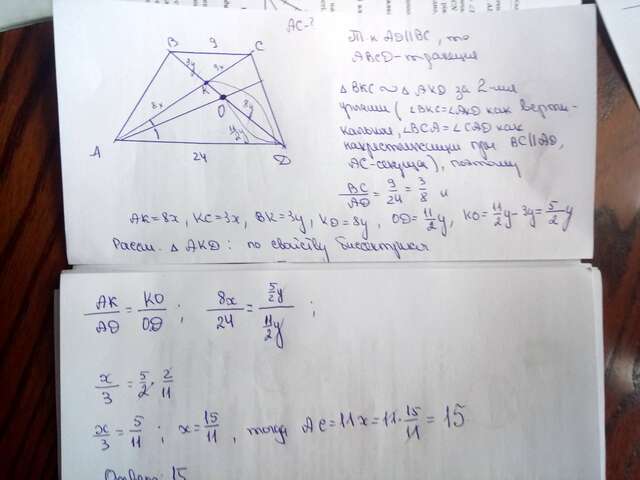 AC-?
B 9 C
3y 3x
K
8x O 8y
11/2 y
A D
24
Т.к AD||BC, то
ABCD-трапеция
△ BKC ~ △ AKD за 2-мя
углами (∠BKC=∠AKD как верти-
кальные, ∠BCA=∠CAD как
накрестлежащие при BC||AD,
AC-секущая), поэтому
BC/AD = 9/24 = 3/8 и
AK=8x, KC=3x, BK=3y, KD=8y, OD=11/2 y, KO=11/2 y-3y=5/2 y
Рассм. △ AKD: по свойству биссектрисы
AK/AD = KO/OD ; 8x/24 = 5/2 y / 11/2 y ;
x/3 = 5/2 · 2/11
x/3 = 5/11 ; x = 15/11 , тогда AC=11x=11·15/11 = 15
Ответ: 15